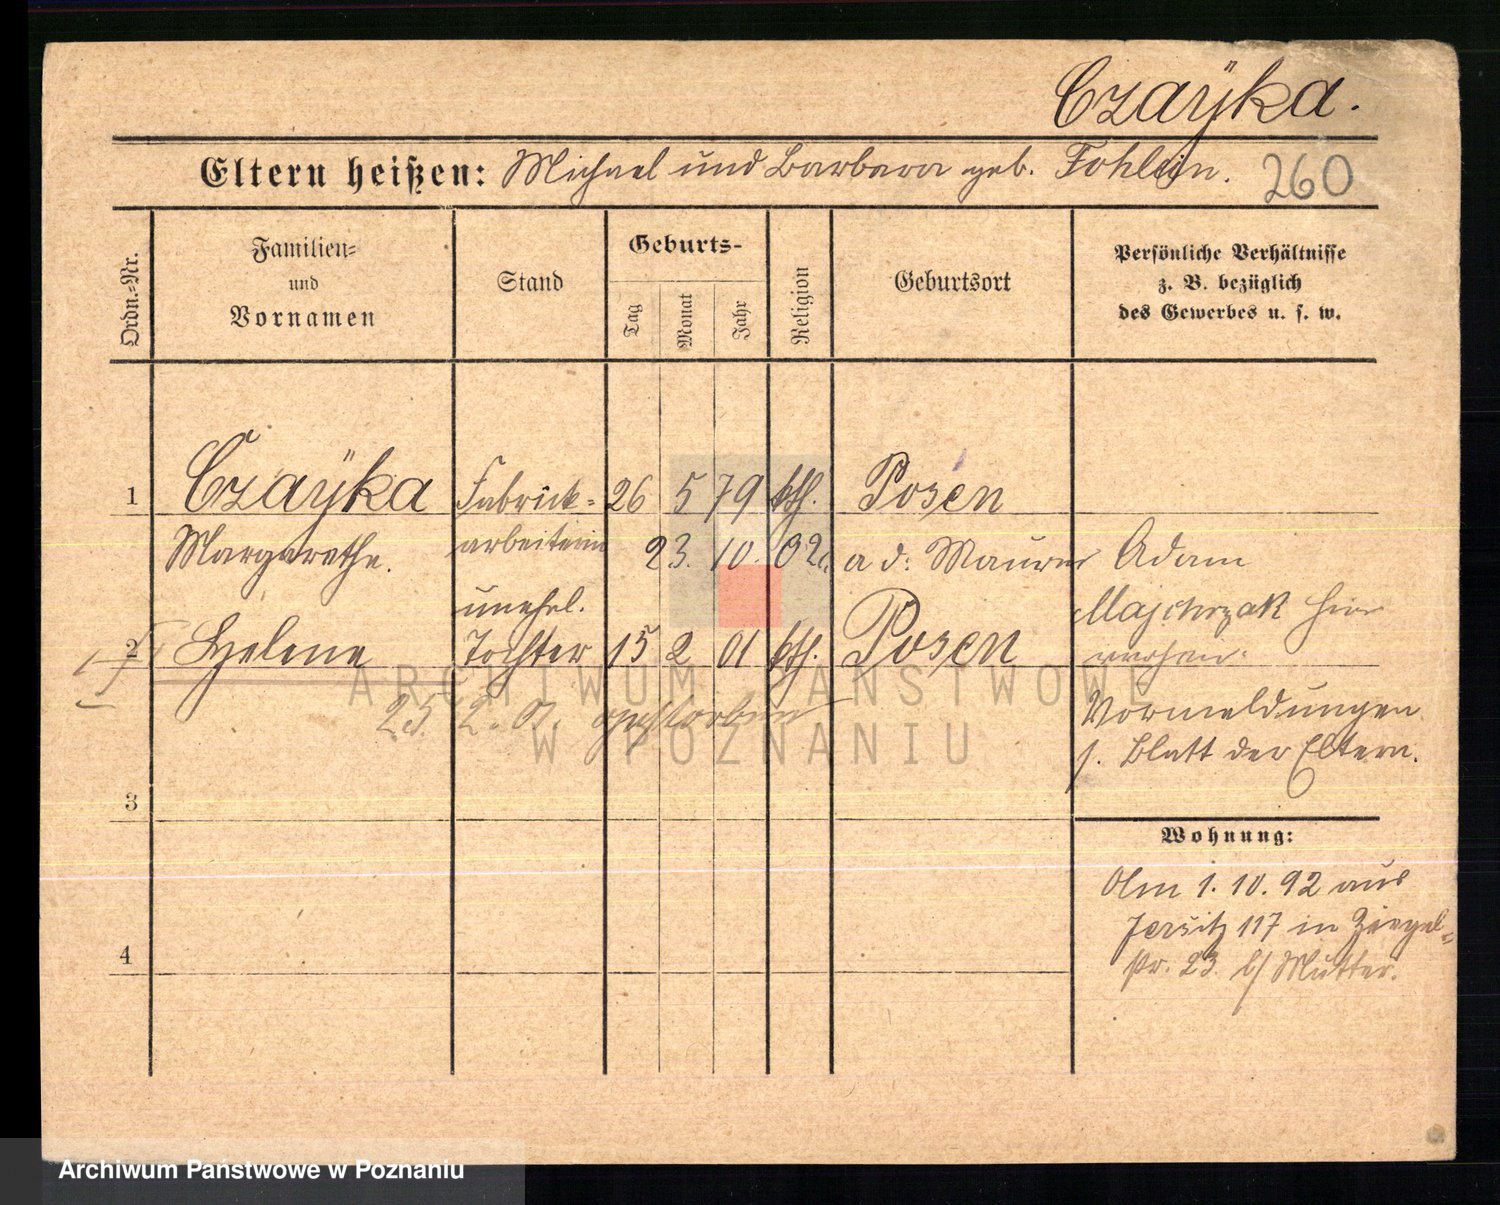 Czaÿka.
Eltern heißen: Michael und Barbara geb. Fohlein. 260
Ordn.=Nr.
Familien=
und
Vornamen
Stand
Geburts-
Tag
Monat
Jahr
Religion
Geburtsort
Persönliche Verhältnisse
z. B. bezüglich
des Gewerbes u. s. w.
1 Czaÿka Fabrick= 26 5 79 kth. Posen
Margarethe. arbeiterin 23. 10. 02. a d: Maurer Adam
unehel. Majchrzak hier
2 Helene Tochter 15 2 01 kth. Posen
25. 2. 01. gestorben
Vormeldungen
s. Blatt der Eltern.
3
Wohnung:
Am 1. 10. 92 aus
Jersitz 117 in Ziegel=
4
str. 23 b/ Mutter.
ARCHIWUM PAŃSTWOWE
W POZNANIU
Archiwum Państwowe w Poznaniu